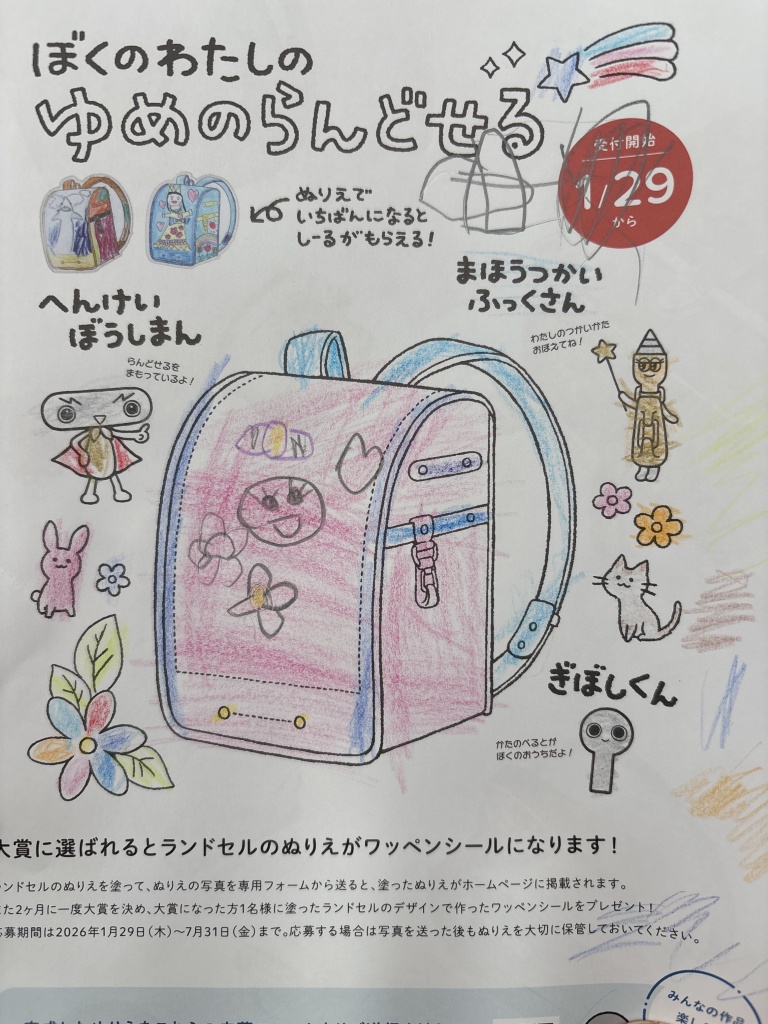 ぼくのわたしの
ゆめのらんどせる
受付開始
1/29
から
ぬりえで
いちばんになると
しーるがもらえる!
へんけい
ぼうしまん
らんどせるを
まもっているよ!
まほうつかい
ふっくさん
わたしのつかいかた
おぼえてね!
ぎぼしくん
かたのべるとが
ぼくのおうちだよ!
大賞に選ばれるとランドセルのぬりえがワッペンシールになります!
ランドセルのぬりえを塗って、ぬりえの写真を専用フォームから送ると、塗ったぬりえがホームページに掲載されます。
また2ヶ月に一度大賞を決め、大賞になった方1名様に塗ったランドセルのデザインで作ったワッペンシールをプレゼント!
応募期間は2026年1月29日(木)〜7月31日(金)まで。応募する場合は写真を送った後もぬりえを大切に保管しておいてください。
みんなの作品